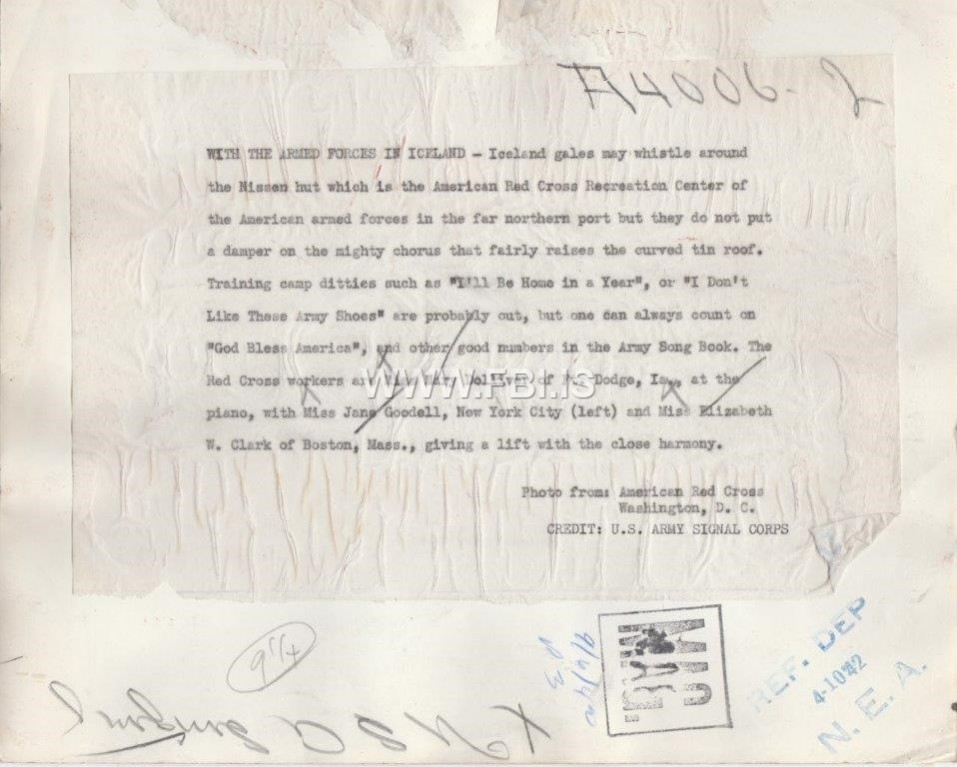 A4006-2
WITH THE ARMED FORCES IN ICELAND - Iceland gales may whistle around
the Nissen hut which is the American Red Cross Recreation Center of
the American armed forces in the far northern port but they do not put
a damper on the mighty chorus that fairly raises the curved tin roof.
Training camp ditties such as "I'll Be Home in a Year", or "I Don't
Like These Army Shoes" are probably out, but one can always count on
"God Bless America", and other good numbers in the Army Song Book. The
Red Cross workers are Dolliver of Dodge, Ia., at the
WWW.FBI.IS
piano, with Miss Jane Goodell, New York City (left) and Miss Elizabeth
W. Clark of Boston, Mass., giving a lift with the close harmony.
Photo from: American Red Cross
Washington, D. C.
CREDIT: U.S. ARMY SIGNAL CORPS
REF. DEP
4-10 42
N. E. A.